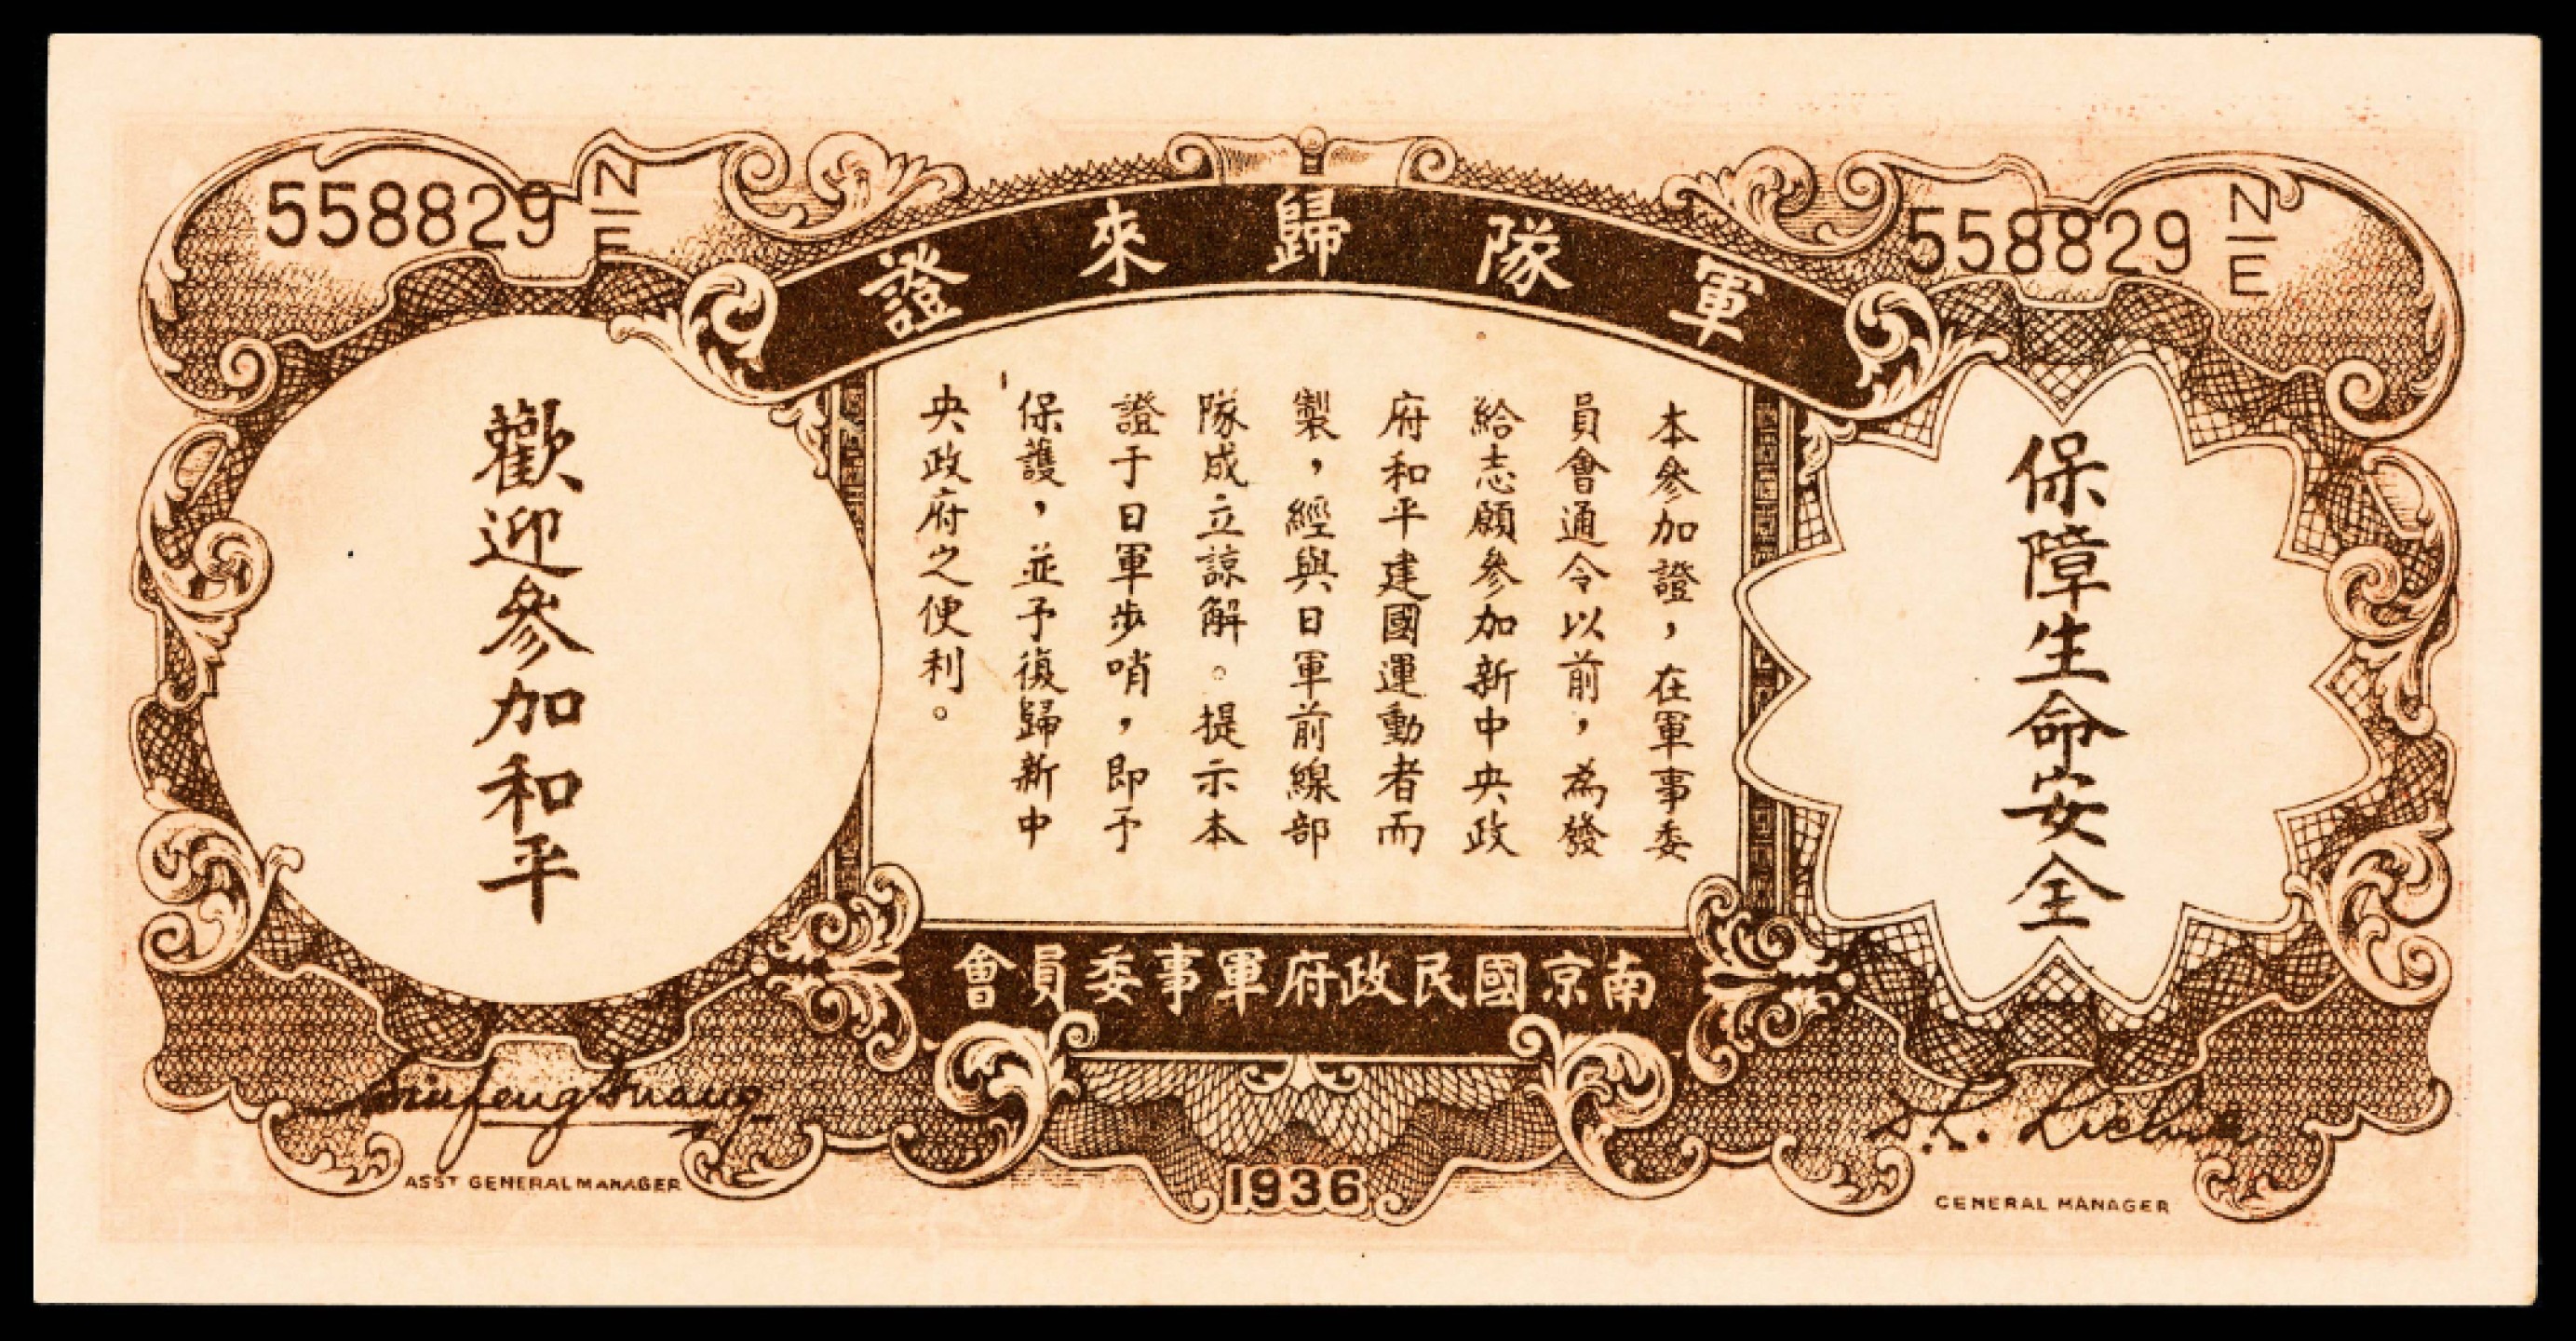 558829 N/E
558829 N/E
軍隊歸來證
保障生命安全
本參加證，在軍事委
員會通令以前，為發
給志願參加新中央政
府和平建國運動者而
製，經與日軍前線部
隊成立諒解。提示本
證于日軍步哨，即予
保護，並予復歸新中
央政府之便利。
歡迎參加和平
南京國民政府軍事委員會
ASST GENERAL MANAGER
1936
GENERAL MANAGER